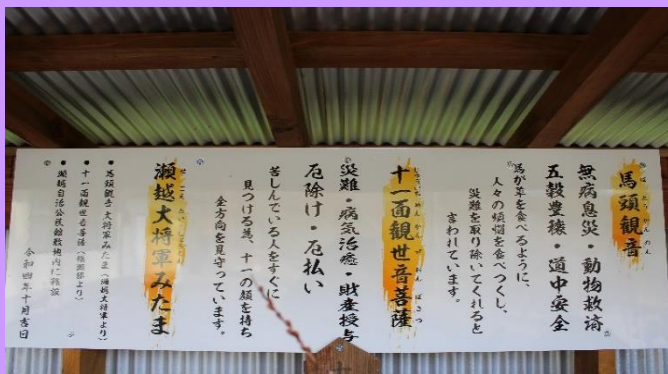 馬頭観音
無病息災・動物救済
五穀豊穣・道中安全
馬が草を食べるように、
人々の煩悩を食べつくし、
災難を取り除いてくれると
言われています。
十一面観世音菩薩
災難・病気治癒・財産授与
厄除け・厄払い
苦しんでいる人をすぐに
見つける為、十一の顔を持ち
全方向を見守っています。
瀬越大将軍みたま
● 馬頭観音 大将軍みたま(瀬越大将軍より)
● 十一面観世音菩薩(
より)
● 瀬越自治公民館敷地内に
令和四年十月吉日